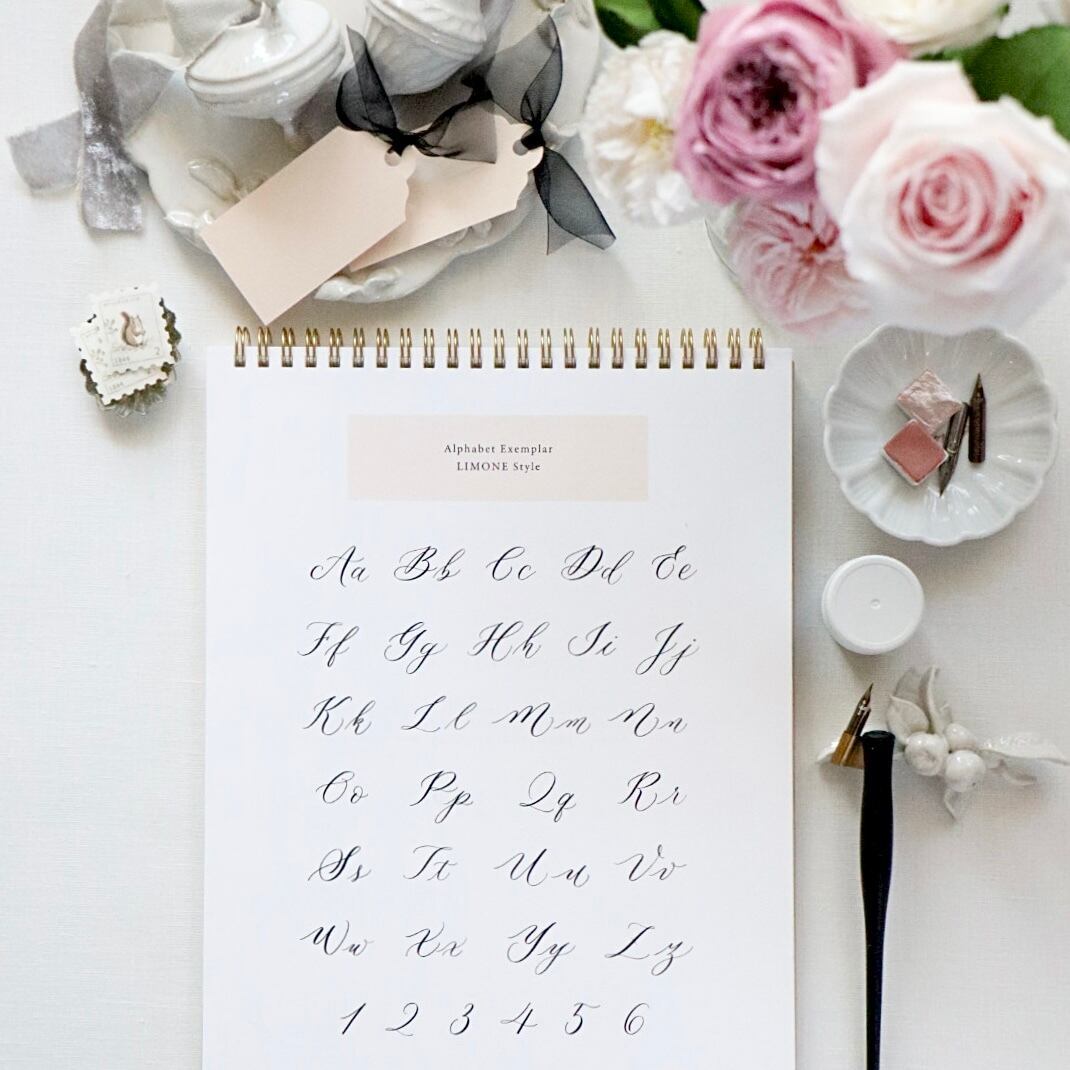 Alphabet Exemplar
LIMONE Style
Aa Bb Cc Dd Ee
Ff Gg Hh Ii Jj
Kk Ll Mm Nn
Oo Pp Qq Rr
Ss Tt Uu Vv
Ww Xx Yy Zz
1 2 3 4 5 6